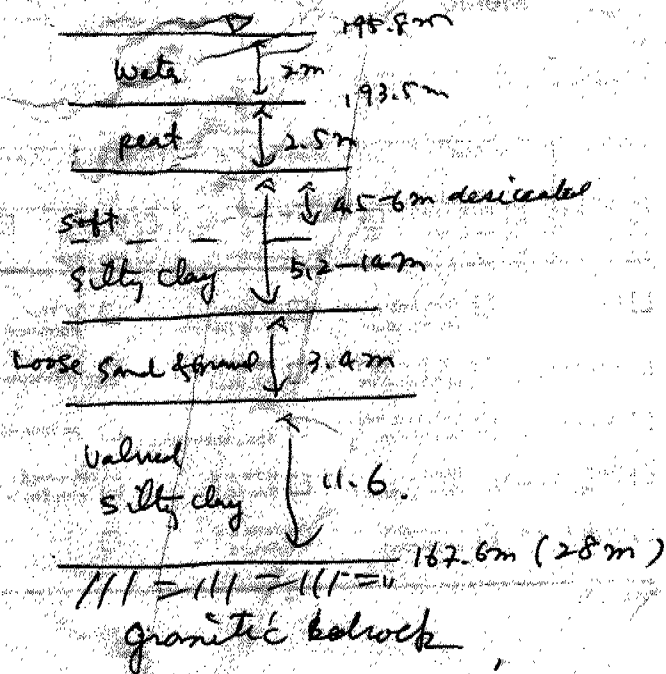 195.8m
Water 2m
193.5m
peat 2.5m
4.5-6m desiccated
Soft
Silty clay 5.2-14m
Loose Sand & Gravel 3.4m
Silty clay 11.6.
167.6m (28m)
granitic bedrock